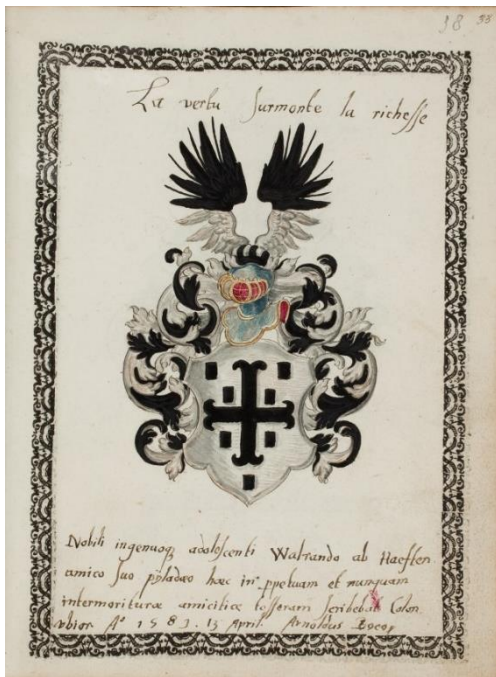 38 38
La vertu surmonte la richesse
Nobili ingenuoq; adolescenti Walrando ab Haeften
amico suo pyladaeo haec in ppetuam et nunquam
intermoriturae amicitiae tesseram scribebat Colon.
Ao 1583. 13 April. Arnoldus